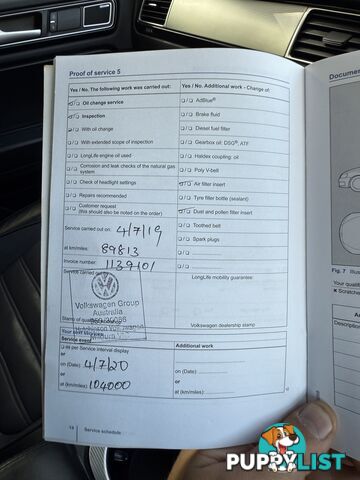 Proof of service 5
Yes / No. The following work was carried out:
Oil change service
Inspection
With oil change
With extended scope of inspection
LongLife engine oil used
Corrosion and leak checks of the natural gas
system
Check of headlight settings
Repairs recommended
Customer request
(this should also be noted on the order)
Service carried out on: 4/7/19
at km/miles: 89813
Invoice number: 1139101
Service carried out
Volkswagen Group
Australia
Stamp of
Your next services
Service event
as per Service interval display
or
on (Date): 4/7/20
or
at (km/miles): 104000
Yes / No. Additional work - Change of:
AdBlue®
Brake fluid
Diesel fuel filter
Gearbox oil: DSG®, ATF
Haldex coupling: oil
Poly V-belt
Air filter insert
Tyre filler bottle (sealant)
Dust and pollen filter insert
Toothed belt
Spark plugs
LongLife mobility guarantee:
Volkswagen dealership stamp
Additional work
on (Date):
or
at (km/miles):
14 Service schedule
Documen
Fig. 7 Illus
Your quali
Scratches
PUPPYLIST